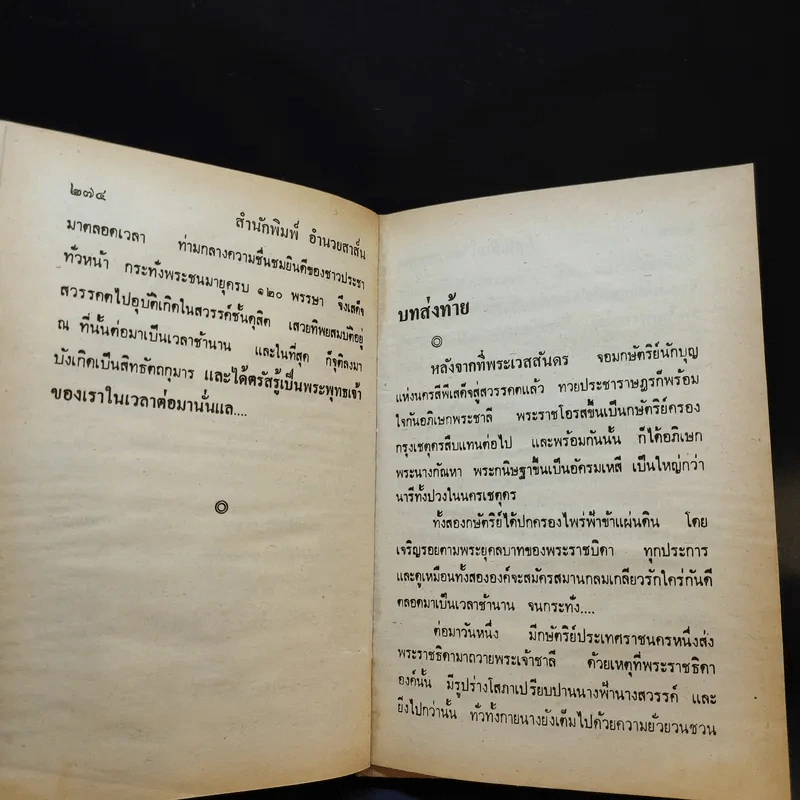 ๒๗๔
สำนักพิมพ์ อำนวยสาส์น
มาตลอดเวลา ท่ามกลางความชื่นชมยินดีของชาวประชา
ทั่วหน้า กระทั่งพระชนมายุครบ ๑๒๐ พรรษา จึงเสด็จ
สวรรคตไปอุบัติเกิดในสวรรค์ชั้นดุสิต เสวยทิพยสมบัติอยู่
ณ ที่นั้นต่อมาเป็นเวลาช้านาน และในที่สุด ก็จุติลงมา
บังเกิดเป็นสิทธัตถกุมาร และได้ตรัสรู้เป็นพระพุทธเจ้า
ของเราในเวลาต่อมานั่นแล....
บทส่งท้าย
หลังจากที่พระเวสสันดร จอมกษัตริย์นักบุญ
แห่งนครสีพีเสด็จสู่สวรรคตแล้ว ทวยประชาราษฎรก็พร้อม
ใจกันอภิเษกพระชาลี พระราชโอรสขึ้นเป็นกษัตริย์ครอง
กรุงเชตุดรสืบแทนต่อไป และพร้อมกันนั้น ก็ได้อภิเษก
พระนางกัณหา พระกนิษฐาขึ้นเป็นอัครมเหสี เป็นใหญ่กว่า
นารีทั้งปวงในนครเชตุดร
ทั้งสองกษัตริย์ได้ปกครองไพร่ฟ้าข้าแผ่นดิน โดย
เจริญรอยตามพระยุคลบาทของพระราชบิดา ทุกประการ
และดูเหมือนทั้งสององค์จะสมัครสมานกลมเกลียวรักใคร่กันดี
ตลอดมาเป็นเวลาช้านาน จนกระทั่ง....
ต่อมาวันหนึ่ง มีกษัตริย์ประเทศราชนครหนึ่งส่ง
พระราชธิดามาถวายพระเจ้าชาลี ด้วยเหตุที่พระราชธิดา
องค์นั้น มีรูปร่างโสภาเปรียบปานนางฟ้านางสวรรค์ และ
ยิ่งไปกว่านั้น ทั่วทั้งกายนางยังเต็มไปด้วยความยั่วยวนชวน